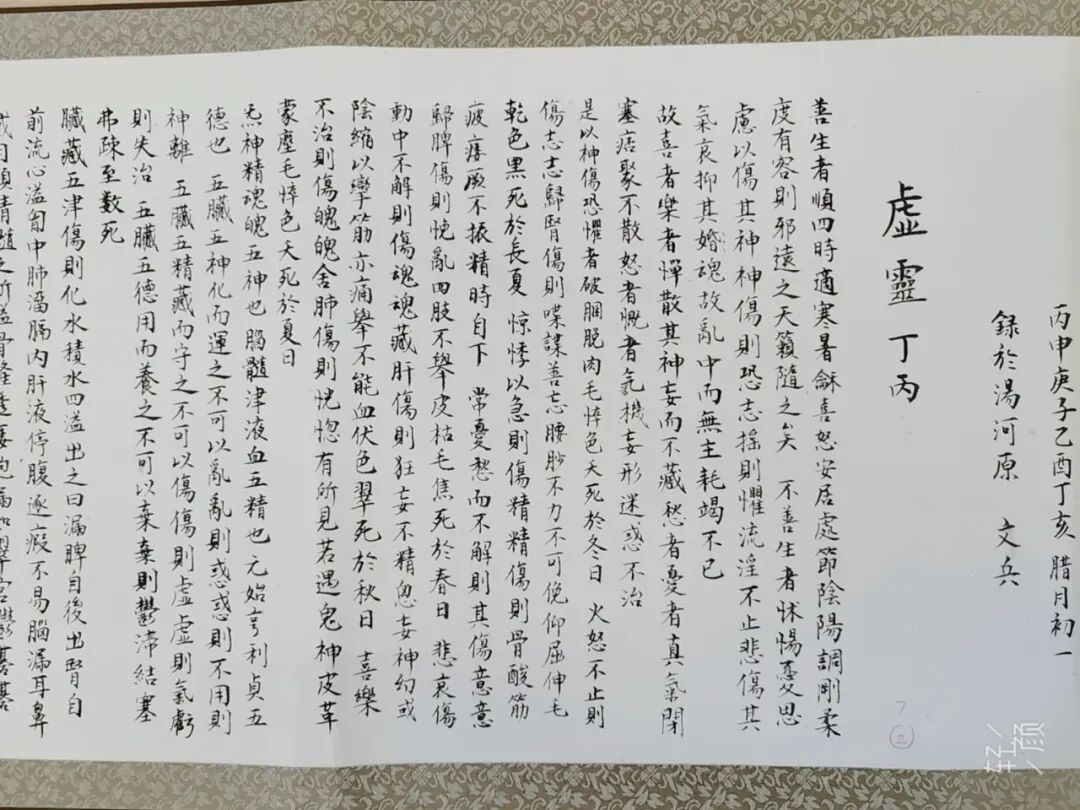 丙申庚子乙酉丁亥 腊月初一
錄於湯河原 文兵
虛靈 丁丙
善生者順四時適寒暑龢喜怒安居處節陰陽調剛柔
度有容則邪遠之天籟隨之矣 不善生者怵惕憂思
慮以傷其神神傷則恐志摇則懼流淫不止悲傷其
氣哀抑其婚魂故亂中而無主耗竭不已
故喜者樂者憚散其神妄而不藏愁者憂者真氣閉
塞痞聚不散怒者慨者氣機妄形迷惑不治
是以神傷恐懼者破䐃脫肉毛悴色夭死於冬日 火怒不止則
傷志志歸腎傷則喋諜善忘腰眇不力不可俛仰屈伸毛
乾色黑死於長夏 惊悸以急則傷精精傷則骨酸筋
疲痿厥不振精時自下 常憂愁而不解則其傷意意
歸脾傷則悗亂四肢不舉皮枯毛焦死於春日 悲哀傷
動中不解則傷魂魂藏肝傷則狂妄不精忽妄神幻或
陰縮以攣筋亦痛舉不能血伏色翠死於秋日 喜樂
不治則傷魄魄舍肺傷則恍惚有所見若遇鬼神皮革
蒙塵毛悴色夭死於夏日
炁神精魂魄五神也 腦髓津液血五精也 元始亨利貞五
德也 五臟五神化而運之不可以亂亂則惑惑則不用則
神離 五臟五精藏而守之不可以傷傷則虛虛則氣虧
則失治 五臟五德用而養之不可以棄棄則鬱滯結塞
弗疎至数死
臟藏五津傷則化水積水四溢出之曰漏脾自後出腎自
前流心溢匈中肺溜膈内肝液停腹逐瘕不易腦漏耳鼻
或目頭精髓之所溢骨